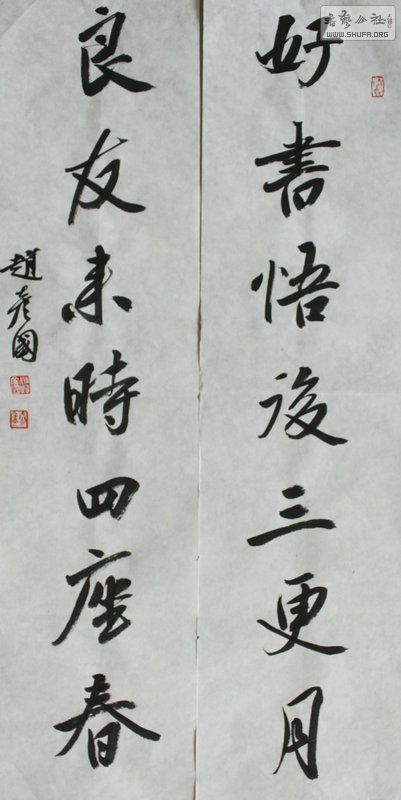 好書悟後三更月
良友来時四座春
趙彦國
書藝公社
WWW.SHUFA.ORG